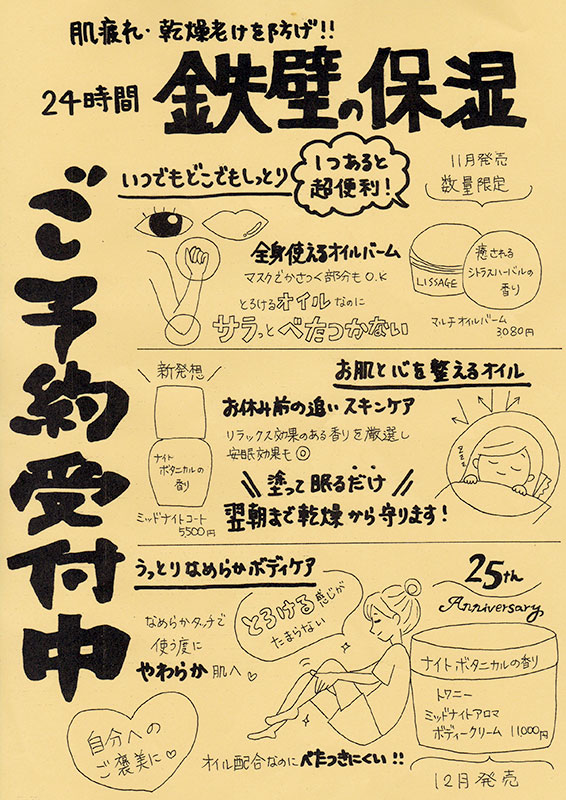 肌疲れ・乾燥老けを防げ!!
24時間 鉄壁の保湿
ご予約受付中
いつでもどこでもしっとり
1つあると
超便利!
11月発売
数量限定
全身使えるオイルバーム
マスクでかさつく部分もO.K
とろけるオイルなのに
サラっとべたつかない
LISSAGE
癒される
シトラスハーバルの
香り
マルチオイルバーム
3080円
新発想
お肌と心を整えるオイル
お休み前の追いスキンケア
リラックス効果のある香りを厳選し
安眠効果も◎
ナイト
ボタニカルの
香り
ミッドナイトコート
5,500円
塗って眠るだけ
翌朝まで乾燥から守ります!
zzz
うっとりなめらかボディケア
なめらかタッチで
使う度に
やわらか肌へ♡
とろける感じが
たまらない
25th
Anniversary
ナイトボタニカルの香り
トワニー
ミッドナイトアロマ
ボディークリーム 11,000円
自分への
ご褒美に♡
オイル配合なのにべたつきにくい!!
12月発売